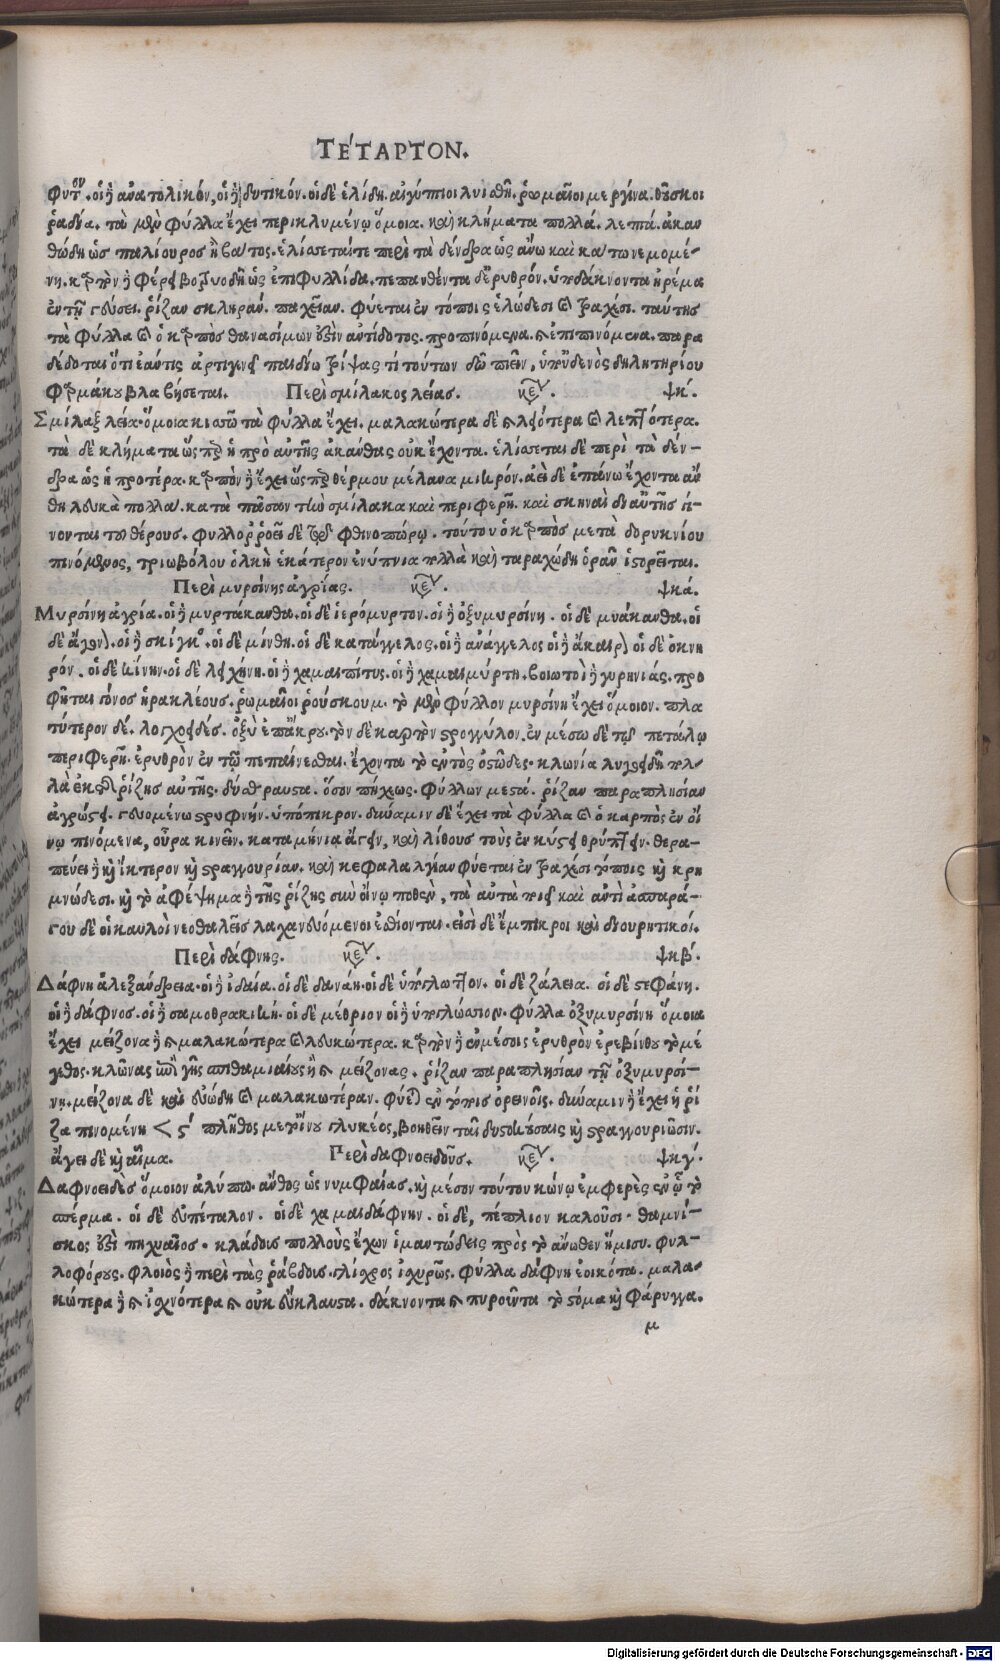 ΤΕ΄ΤΑΡΤΟΝ.
φυτὸν. οἱ δὲ ἀνατολικόν, οἱ δὲ δυτικόν. οἱ δὲ ἑλίδη. αἰγύπτιοι λυισθὴ. ῥωμαῖοι μεργίνα. θοῦσκοι
ῥαδία. τὰ μὲν φύλλα ἔχει περικλυμένῳ ὅμοια. καὶ κλήματα πολλά. λεπτά. ἀκαν
θώδη ὡς παλίουρος ἢ βάτος. ἑλίσσεταί τε περὶ τὰ δένδρα ὡς ἄνω καὶ κάτω νεμομέ-
νη. καρπὸν δὲ φέρει βοτρυοδῆ ὡς ἐπιφυλλίδα. πεπανθέντα δὲ ἐρυθρόν. ὑποδάκνοντα ἠρέμα
ἐν τῇ γεύσει. ῥίζαν σκληράν. παχεῖαν. φύεται ἐν τόποις ἑλώδεσι καὶ τραχέσι. ταύτης
τὰ φύλλα καὶ ὁ καρπὸς θανασίμων ἐστὶν ἀντίδοτος. προπινόμενα. καὶ ἐπιπινόμενα. παρα
δέδοται ὅτι ἐάν τις ἀρτιγενεῖ παιδίῳ τρίψας τι τούτων δῷ πιεῖν, ὑπ' οὐδενὸς δηλητηρίου
φαρμάκου βλαβήσεται. Περὶ σμίλακος λείας. κεφ. ψκ΄.
Σμίλαξ λεῖα· ὅμοια κισσῷ τὰ φύλλα ἔχει. μαλακώτερα δὲ καὶ λειότερα καὶ λεπτότερα.
τὰ δὲ κλήματα ὥσπερ ἡ πρὸ αὐτῆς ἀκάνθας οὐκ ἔχοντα. ἑλίσσεται δὲ περὶ τὰ δέν-
δρα ὡς ἡ προτέρα. καρπὸν δὲ ἔχει ὥσπερ θέρμου μέλανα μικρόν. ἀεὶ δὲ ἐπάνω ἔχοντα ἄν
θη λευκὰ πολλὰ. κατὰ πᾶσαν τὴν σμίλακα καὶ περιφερῆ. καὶ σκηναὶ δι' αὐτῆς γί-
νονται τοῦ θέρους. φυλλορροεῖ δὲ τῷ φθινοπώρῳ. τούτου ὁ καρπὸς μετὰ δορυκνίου
πινόμενος, τριωβόλου ὁλκὴ ἑκάτερον ἐνύπνια πολλὰ καὶ ταραχώδη ὁρᾶν ἱστορεῖται.
Περὶ μυρσίνης ἀγρίας. κεφ. ψκά.
Μυρσίνη ἀγρία. οἱ δὲ μυρτάκανθα. οἱ δὲ ἱερόμυρτον. οἱ δὲ ὀξυμυρσίνη. οἱ δὲ μυάκανθα. οἱ
δὲ ἄγον. οἱ δὲ σκίγκος. οἱ δὲ μίνθη. οἱ δὲ κατάγγελος. οἱ δὲ ἀνάγγελος οἱ δὲ ἄκαιρον οἱ δὲ ὀκνη
ρόν. οἱ δὲ κίνην. οἱ δὲ λειχήνη. οἱ δὲ χαμαιπίτυς. οἱ δὲ χαμαιμύρτη. βοιωτοὶ δὲ γυρηνιάς. προ
φῆται γόνος ἡρακλέους. ῥωμαῖοι ῥούσκουμ. τὸ μὲν φύλλον μυρσίνῃ ἔχει ὅμοιον. πλα
τύτερον δέ. λογχοειδές. ὀξὺ ἐπ' ἄκρου. τὸν δὲ καρπὸν στρογγύλον. ἐν μέσῳ δὲ τῷ πετάλῳ
περιφερῆ. ἐρυθρὸν ἐν τῷ πεπαίνεσθαι. ἔχοντα τὸ ἐντὸς ὀστῶδες. κλωνία λυγοειδῆ πολ-
λὰ ἐκ τῆς ῥίζης αὐτῆς. δύσθραυστα. ὅσον πήχεως. φύλλων μεστά. ῥίζαν παραπλησίαν
ἀγρώστει. γευομένῳ στρυφνήν. ὑπόπικρον. δύναμιν δὲ ἔχει τὰ φύλλα καὶ ὁ καρπὸς ἐν οἴ
νῳ πινόμενα, οὖρα κινεῖν. καταμήνια ἄγειν, καὶ λίθους τοὺς ἐν κύστει θρύπτειν. θερα-
πεύει δὲ καὶ ἴκτερον καὶ στραγγουρίαν. καὶ κεφαλαλγίαν φύεται ἐν τραχέσι τόποις καὶ κρη
μνώδεσι. καὶ τὸ ἀφέψημα δὲ τῆς ῥίζης σὺν οἴνῳ ποθὲν, τὰ αὐτὰ ποιεῖ καὶ ἀντὶ ἀσπαρά-
γου δὲ οἱ καυλοὶ νεοθαλεῖς λαχανευόμενοι ἐσθίονται. εἰσὶ δὲ ἔμπικροι καὶ διουρητικοί.
Περὶ δάφνης. κεφ. ψκβ΄.
Δάφνη ἀλεξάνδρεια. οἱ δὲ ἰδαία. οἱ δὲ δανάη. οἱ δὲ ὑπόγλωττον. οἱ δὲ ζάλεια. οἱ δὲ στεφάνη.
οἱ δὲ δάφνος. οἱ δὲ σαμοθρακική. οἱ δὲ μέθριον οἱ δὲ ὑπογλώσσιον. φύλλα ὀξυμυρσίνῃ ὅμοια
ἔχει μείζονα δὲ καὶ μαλακώτερα καὶ λευκώτερα. καρπὸν δὲ ἐν μέσοις ἐρυθρὸν ἐρεβίνθου τὸ μέ
γεθος. κλῶνας ἐπὶ γῆς σπιθαμιαίους ἢ καὶ μείζονας. ῥίζαν παραπλησίαν τῇ ὀξυμυρσί-
νῃ. μείζονα δὲ καὶ εὐώδη καὶ μαλακωτέραν. φύεται ἐν τόποις ὀρεινοῖς. δύναμιν δὲ ἔχει ἡ ῥί
ζα πινομένη < ϛ΄ πλῆθος μετ' οἴνου γλυκέος, βοηθεῖν ταῖς δυστοκούσαις καὶ στραγγουριῶσιν.
ἄγει δὲ καὶ αἷμα. Περὶ δαφνοειδοῦς. κεφ. ψκγ΄.
Δαφνοειδὲς ὅμοιον ἀλύπῳ. ἄνθος ὡς νυμφαίας. καὶ μέσον τούτου κώνῳ ἐμφερὲς ἐν ᾧ τὸ
σπέρμα. οἱ δὲ εὐπέταλον. οἱ δὲ χαμαιδάφνην. οἱ δὲ, πέπλιον καλοῦσι. θαμνί-
σκος ἐστὶ πηχυαῖος. κλάδους πολλοὺς ἔχων ἱμαντώδεις πρὸς τὸ ἄνωθεν ἥμισυ. φυλ-
λοφόρους. φλοιὸς δὲ περὶ τὰς ῥάβδους. γλίχρος ἰσχυρῶς. φύλλα δάφνῃ ἐοικότα. μαλα-
κώτερα δὲ καὶ ἰσχνότερα καὶ οὐκ εὔκλαυστα. δάκνοντα καὶ πυροῦντα τὸ στόμα καὶ φάρυγγα.
μ
Digitalisierung gefördert durch die Deutsche Forschungsgemeinschaft - DFG